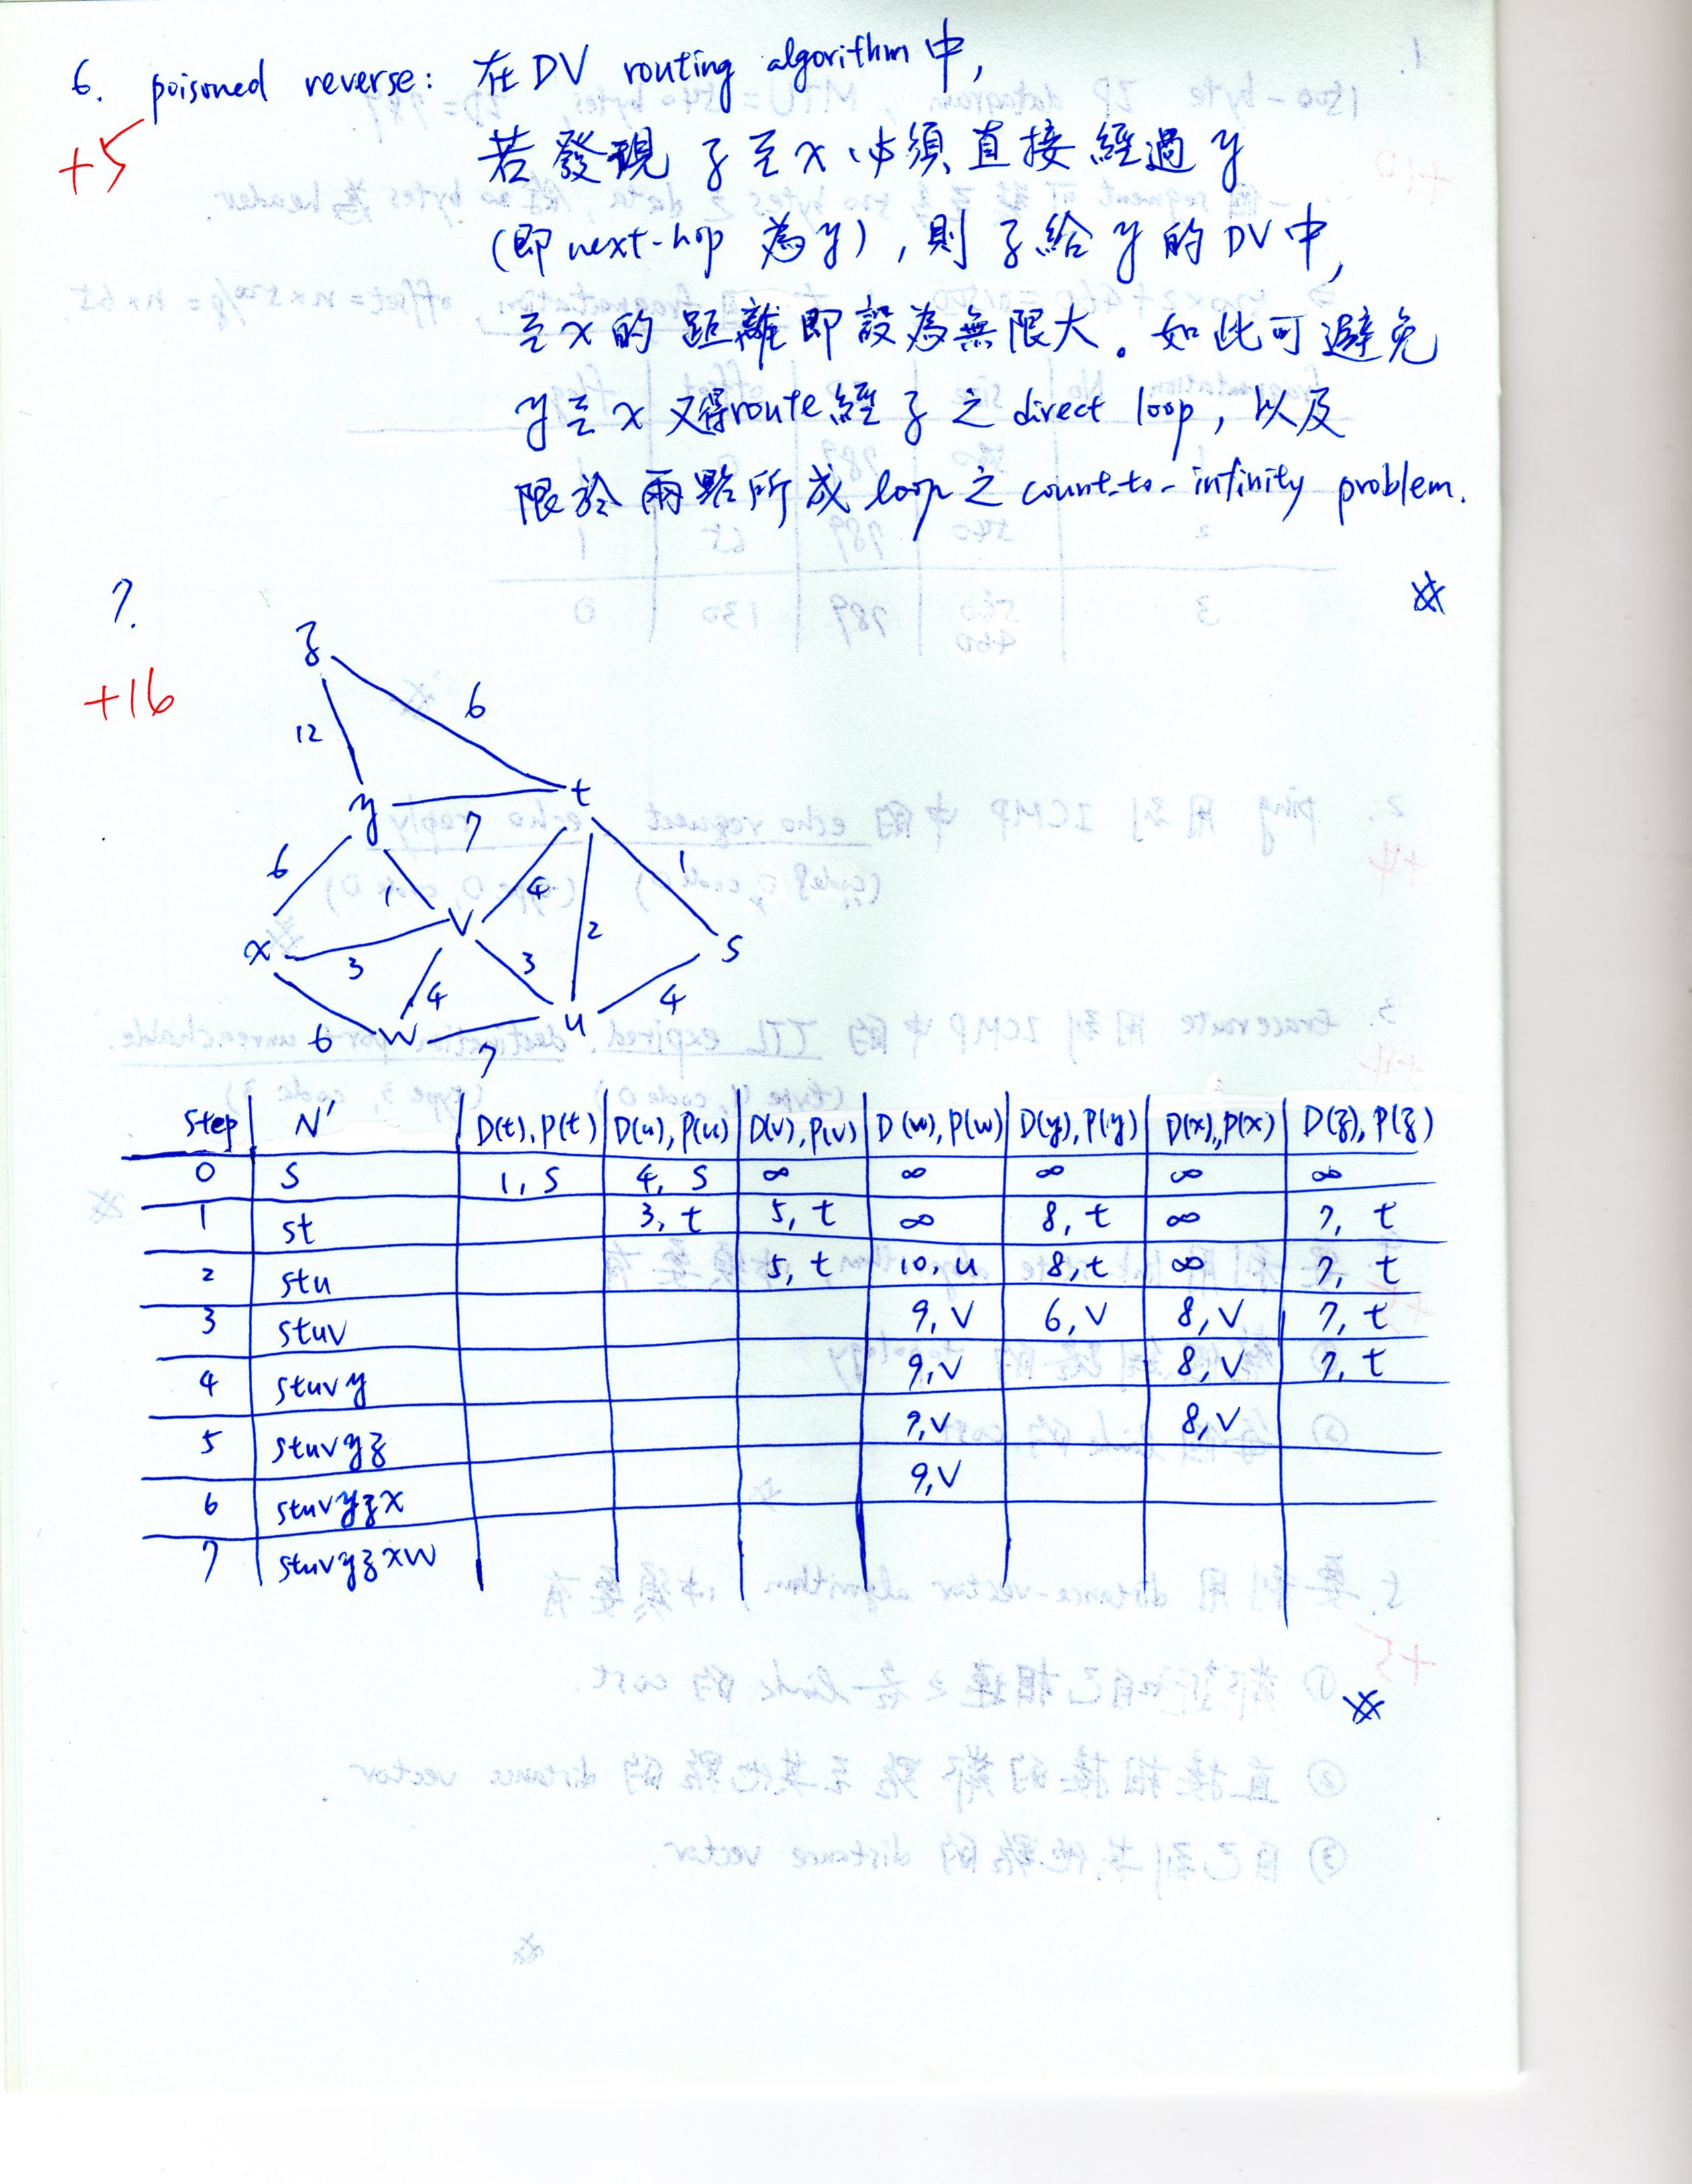 6. poisoned reverse: 在DV routing algorithm中,
+5
若發現 z至x必須直接經過y
(即next-hop 為y), 則z給y的DV中,
至x的距離即設為無限大。如此可避免
y至x又得route經z之direct loop, 以及
限於兩點所成loop之count-to-infinity problem.
7.
+16
z
6
12
y
t
7
6
1
4
1
x
v
2
s
3
3
4
4
6
w
u
7
Step N' D(t),P(t) D(u),P(u) D(v),P(v) D(w),P(w) D(y),P(y) D(x),P(x) D(z),P(z)
0 s 1,s 4,s ∞ ∞ ∞ ∞ ∞
1 st 3,t 5,t ∞ 8,t ∞ 7,t
2 stu 5,t 10,u 8,t ∞ 7,t
3 stuv 9,v 6,v 8,v 7,t
4 stuvy 9,v 8,v 7,t
5 stuvyz 9,v 8,v
6 stuvyzx 9,v
7 stuvyzxw